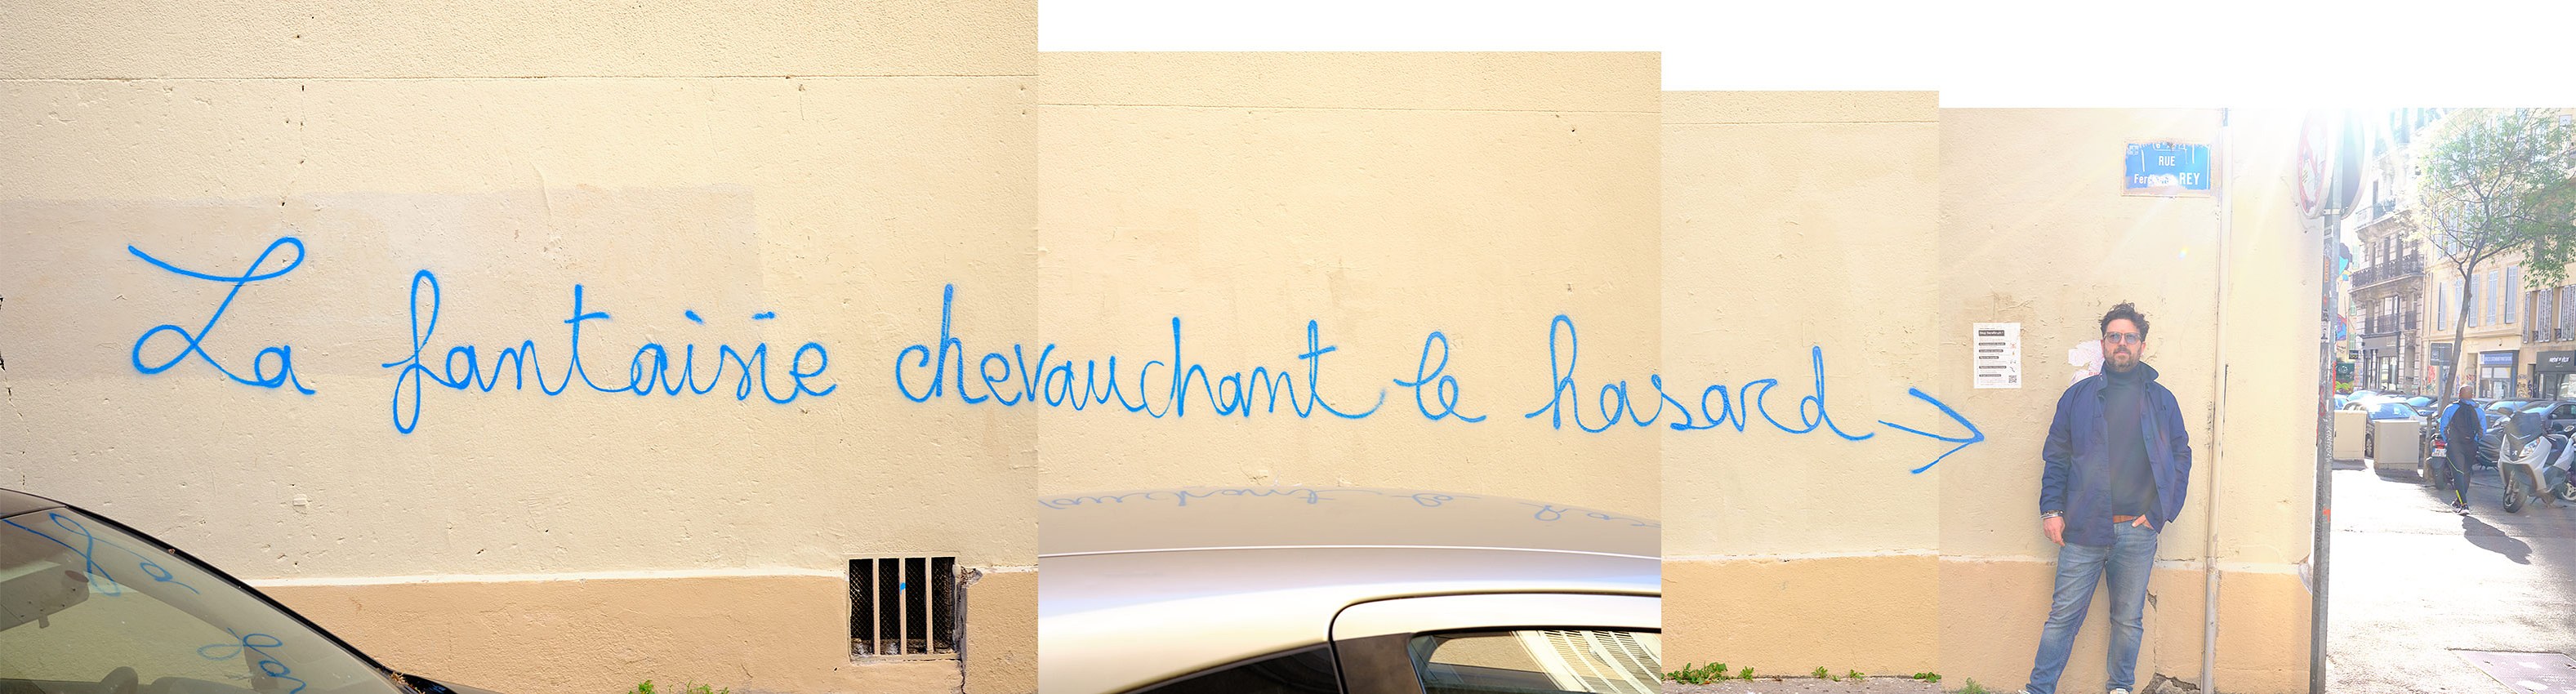 La fantaisie chevauchant le hasard →
RUE
REY